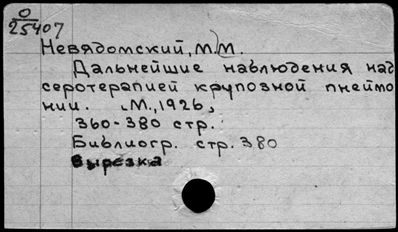 О
25407
Невядомский, М.М.
Дальнейшие наблюдения над
серотерапией крупозной пнеймо
нии. М., 1926,
360-380 стр.
Библиогр. стр. 380
Вырезка